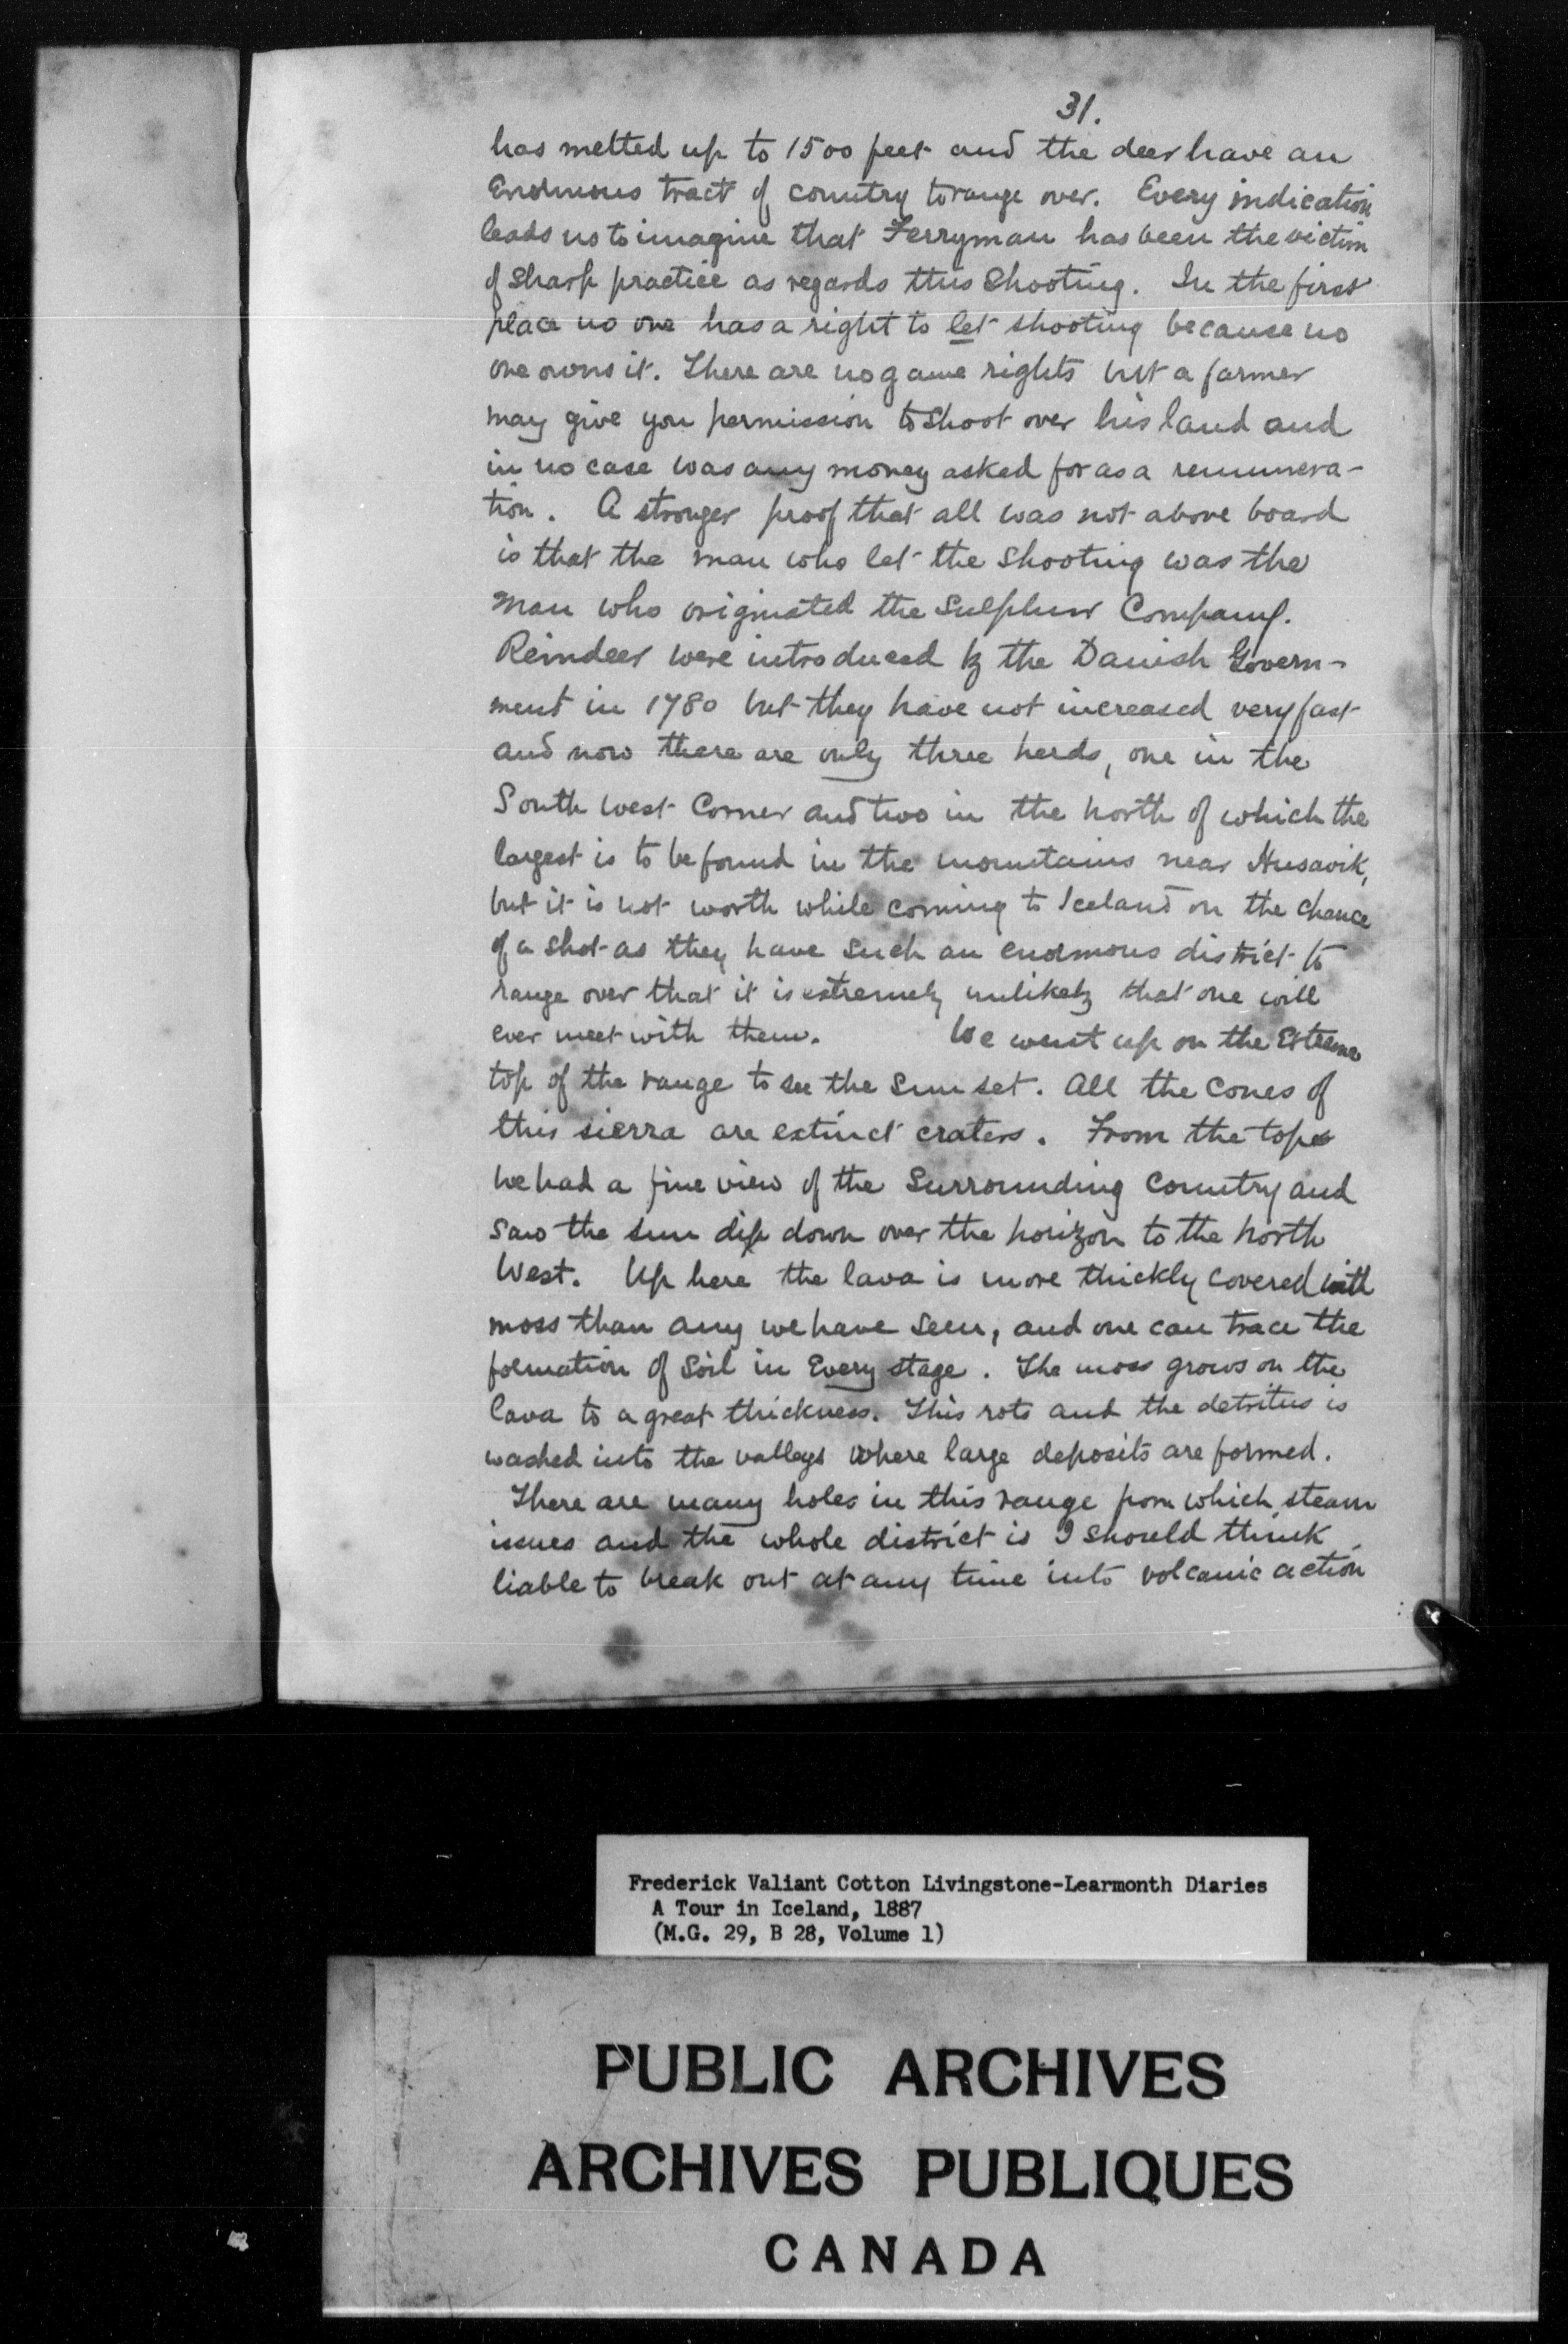 31.
has melted up to 1500 feet and the deer have an
Enormous tract of country to range over. Every indication
leads us to imagine that Ferryman has been the victim
of sharp practice as regards this shooting. In the first
place no one has a right to let shooting because no
one owns it. There are no game rights but a farmer
may give you permission to shoot over his land and
in no case was any money asked for as a remunera-
tion. A stronger proof that all was not above board
is that the man who let the shooting was the
man who originated the Sulphur Company.
Reindeer were introduced by the Danish Govern-
ment in 1780 but they have not increased very fast
and now there are only three herds, one in the
South West Corner and two in the north of which the
largest is to be found in the mountains near Husavik,
but it is not worth while coming to Iceland on the chance
of a shot as they have such an enormous district to
range over that it is extremely unlikely that one will
ever meet with them. We went up on the Extreme
top of the range to see the Sun set. All the cones of
this sierra are extinct craters. From the top
we had a fine view of the Surrounding Country and
saw the sun dip down over the horizon to the north
West. Up here the lava is more thickly covered with
moss than any we have seen, and one can trace the
formation of Soil in Every stage. The moss grows on the
lava to a great thickness. This rots and the detritus is
washed into the valleys where large deposits are formed.
There are many holes in this range from which steam
issues and the whole district is I should think
liable to break out at any time into volcanic action
Frederick Valiant Cotton Livingstone-Learmonth Diaries
A Tour in Iceland, 1887
(M.G. 29, B 28, Volume 1)
PUBLIC ARCHIVES
ARCHIVES PUBLIQUES
CANADA